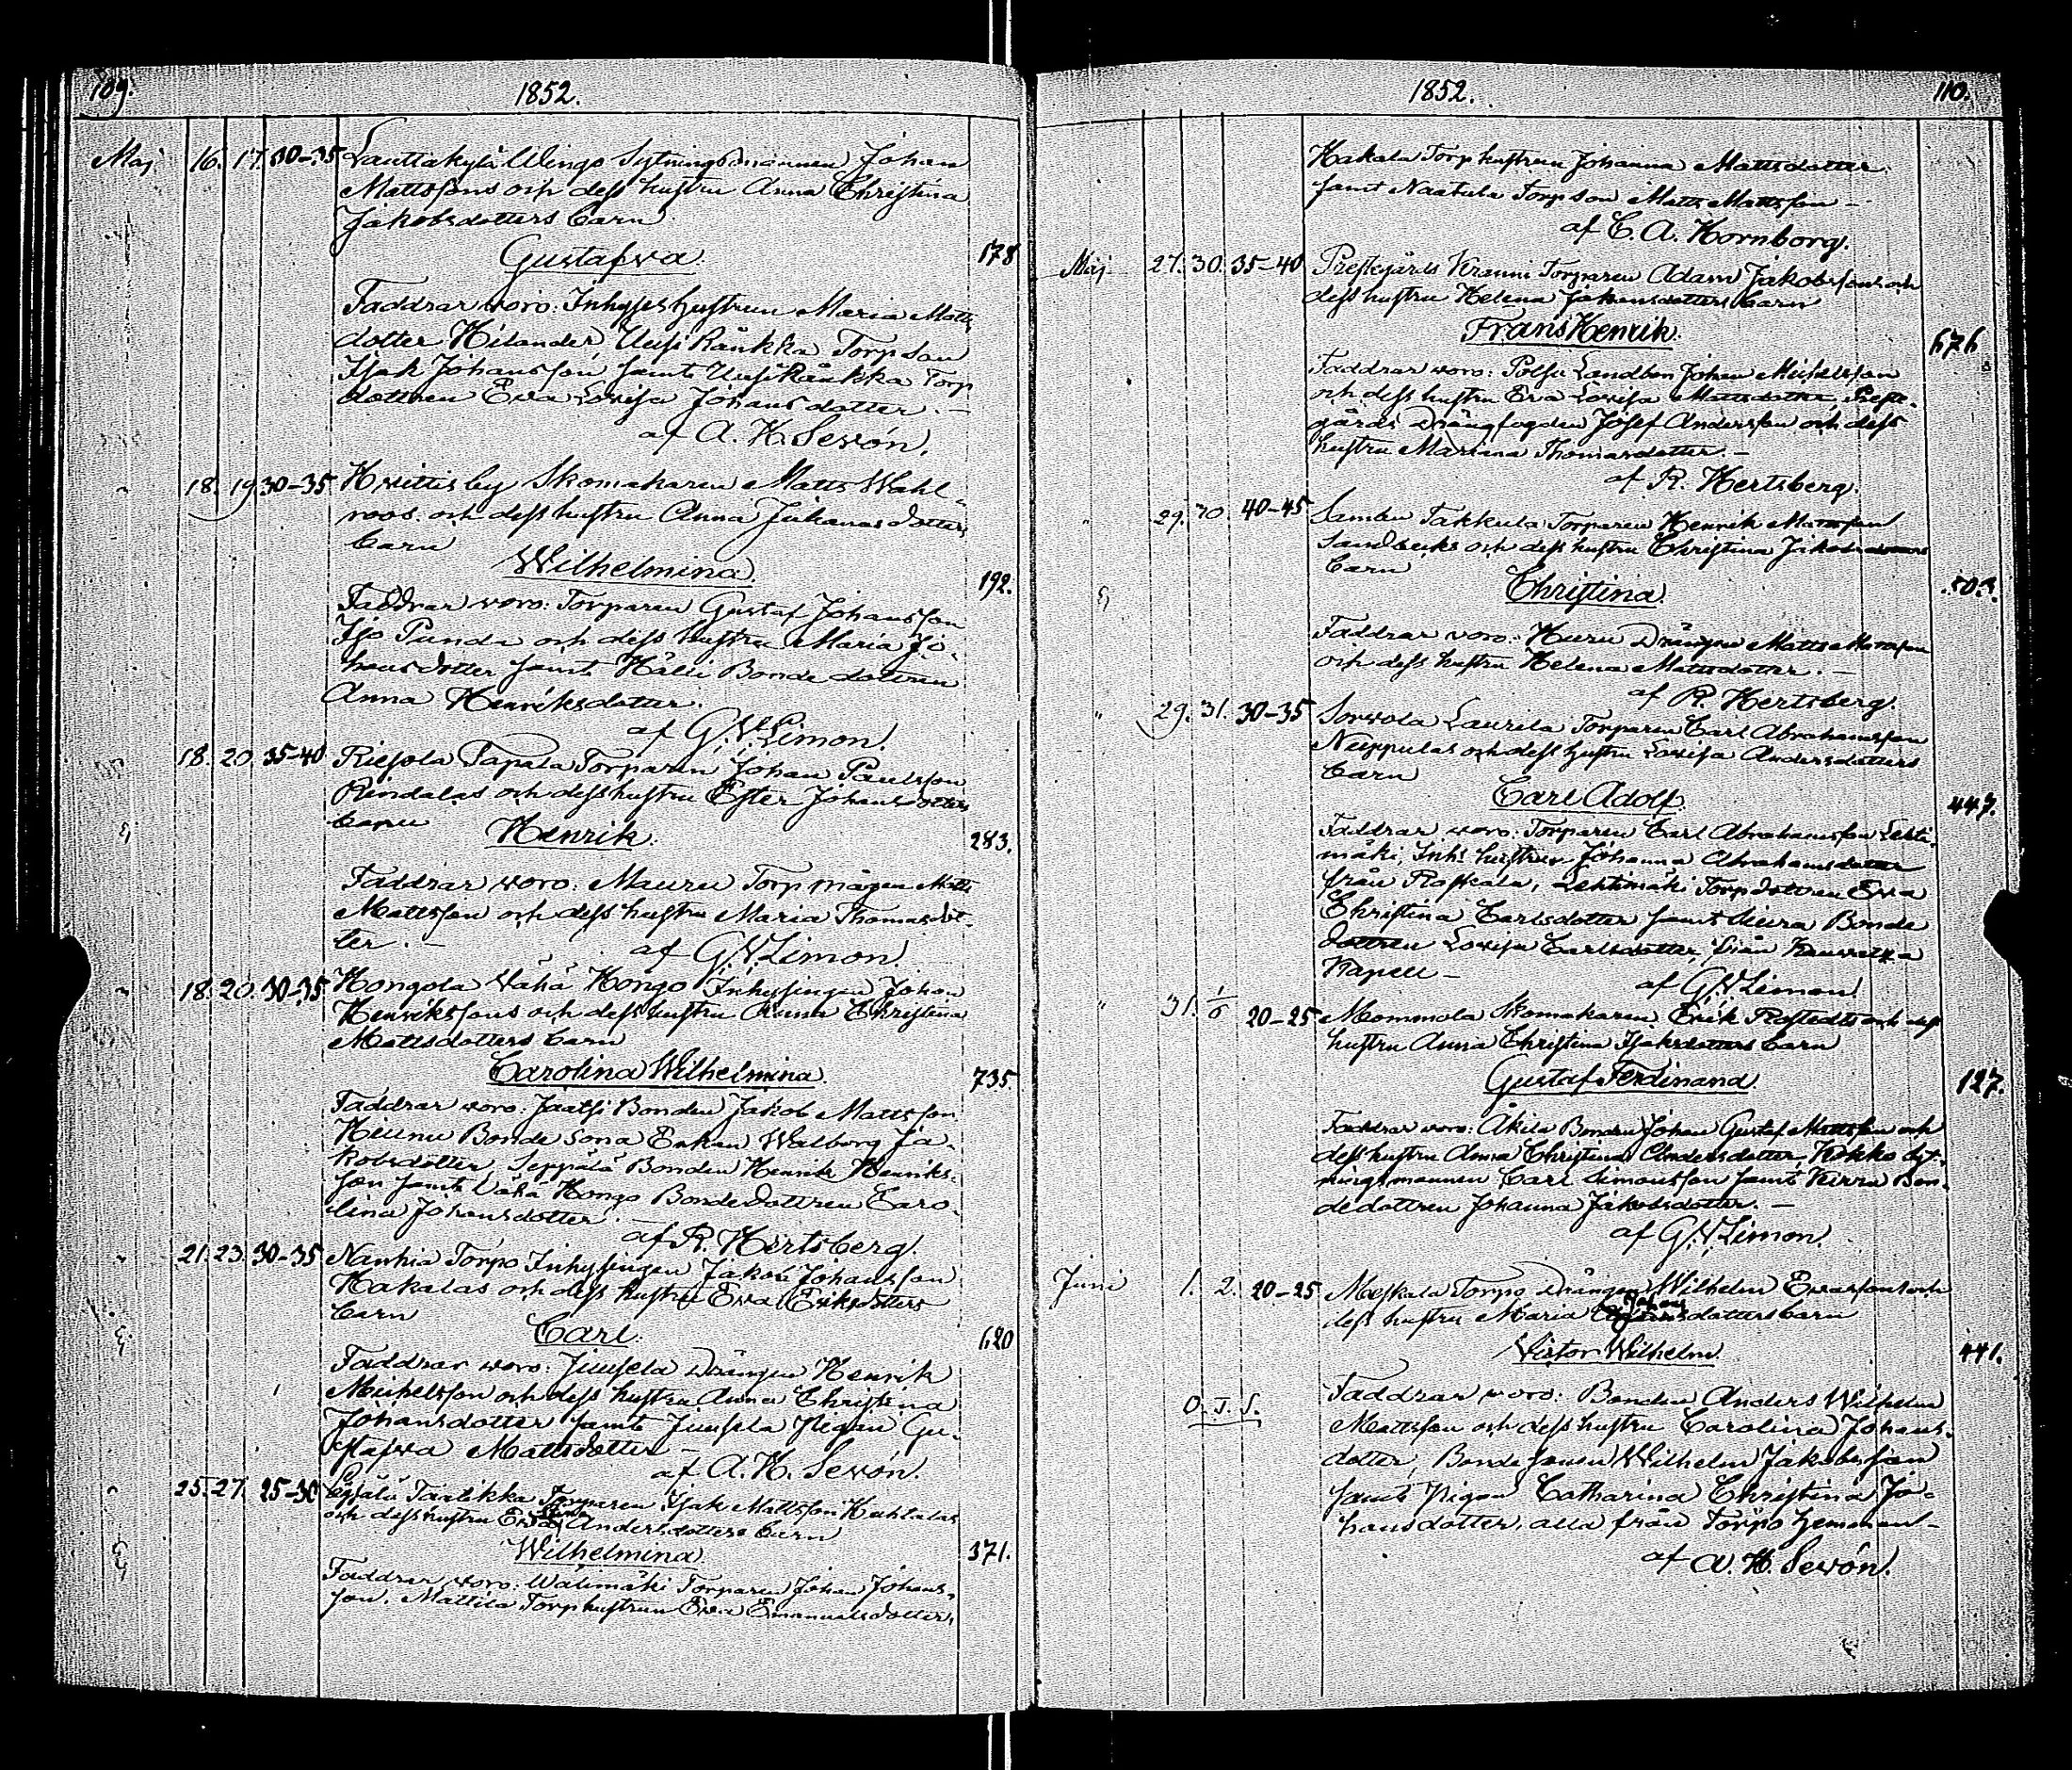 109.
1852.
Maj 16. 17. 30-35 Lauttakylä Wingo Sytningsmannen Johan
Mattssons och dess hustru Anna Christina
Jakobsdotters barn
Gustafva. 178
Faddrar woro: Inhyses hustrun Maria Matts
dotter Hilander, Uusi Rånkka Torpson
Isak Johansson, samt Uusi Rånkka Torp
dottren Eva Lovisa Johansdotter. —
af A. H. Sevón.
" 18. 19. 30-35 Hvittisby Skomakaren Matts Wahl-
roos och dess hustru Anna Juhanasdotters
barn
Wilhelmina. 192.
Faddrar woro: Torparen Gustaf Johansson
Iso Panda och dess hustru Maria Jo-
hansdotter samt Hälli Bonde dottren
Anna Henriksdotter.
af G. W. Limon.
18. 20. 35-40 Riesola Papala Torparen Johan Paulsson
Rindalas och dess hustru Ester Johansdotters
barn
Henrik. 283.
Faddrar woro: Mauru Torpmågen Matts
Mattsson och dess hustru Maria Thomasdot-
ter. —
af G. W. Limon
" 18. 20. 30-35 Hongola Wähä Hongo Inhysingen Johan
Henrikssons och dess hustru Anna Christina
Mattsdotters barn
Carolina Wilhelmina. 735.
Faddrar woro: Jaatsi Bonden Jakob Mattsson
Heunu Bonde sona Enkan Walborg Ja-
kobsdotter, Seppälä Bonden Henrik Henriks-
son samt Wähä Hongo Bondedottren Caro-
lina Johansdotter. —
af R. Hertsberg.
" 21. 23. 30-35 Nanhia Torpo Inhysingen Jakob Johansson
Hakalas och dess hustru Eva Eriksdotters
barn
Carl. 620
Faddrar woro: Junsela Drängen Henrik
Michelsson och dess hustru Anna Christina
Johansdotter samt Junsela Pigan Gu-
stafva Mattsdotter —
af A. H. Sevón.
" 25. 27. 25-30 Taatikka Torparen Isak Mattsson Huhtalas
och dess hustru Eva Andersdotters barn
Wilhelmina 371.
Faddrar woro: Walimäki Torparen Johan Johans-
son, Mattila Torphustrun Eva Emanuelsdotter,
1852.
110.
Hakala Torphustrun Johanna Mattsdotter
samt Naatula Torpson Matts Mattsson —
af C. A. Hornborg.
Maj 27. 30. 35-40 Prestgårds Kranni Torparen Adam Jakobssons och
dess hustru Helena Johansdotters barn
Frans Henrik. 676
Faddrar woro: Polsu Landbon Johan Michelsson
och dess hustru Eva Lovisa Mattsdotter, Preste-
gårds Drängfogden Josef Andersson och dess
hustru Mariana Thomasdotter. —
af R. Hertsberg.
" 29. 30. 40-45 Sambu Takkula Torparen Henrik Mattsson
Sandbecks och dess hustru Christina Jakobsdotters
barn
Christina. 503.
Faddrar woro: Huru Drängen Matts Mattsson
och dess hustru Helena Mattsdotter. —
af R. Hertsberg.
" 29. 31. 30-35 Sorvola Laurila Torparen Carl Abrahamsson
Neuppulas och dess hustru Lovisa Andersdotters
barn
Carl Adolf. 447.
Faddrar woro: Torparen Carl Abrahamsson Lehti-
mäki, Inh: hustrun Johanna Abrahamsdotter
från Raskala, Lehtimäki Torpdottren Eva
Christina Carlsdotter samt Bonde
dottren Lovisa Carlsdotter, från
Kapell —
af G. W. Limon
" 31. 1/6 20-25 Mommola Skomakaren Erik Rostedts och dess
hustru Anna Christina Isaksdotters barn
Gustaf Ferdinand. 127.
Faddrar woro: Äkilä Bonden Johan Gustaf Mattsson och
dess hustru Anna Christina Andersdotter, Kokko Syt-
ningsmannen Carl Simonsson samt Kirra Bon-
dedottren Johanna Jakobsdotter. —
af G. W. Limon.
Juni 1. 2. 20-25 Meskala Torpo Drängen Wilhelm Evarssons och
dess hustru Maria Johansdotters barn
Victor Wilhelm. 441.
O. T. S.
Faddrar woro: Bonden Anders Wilhelm
Mattsson och dess hustru Carolina Johans-
dotter, Bonde sonen Wilhelm Jakobsson
samt Pigan Catharina Christina Jo-
hansdotter, alla från Torpo hemman —
af A. H. Sevón.